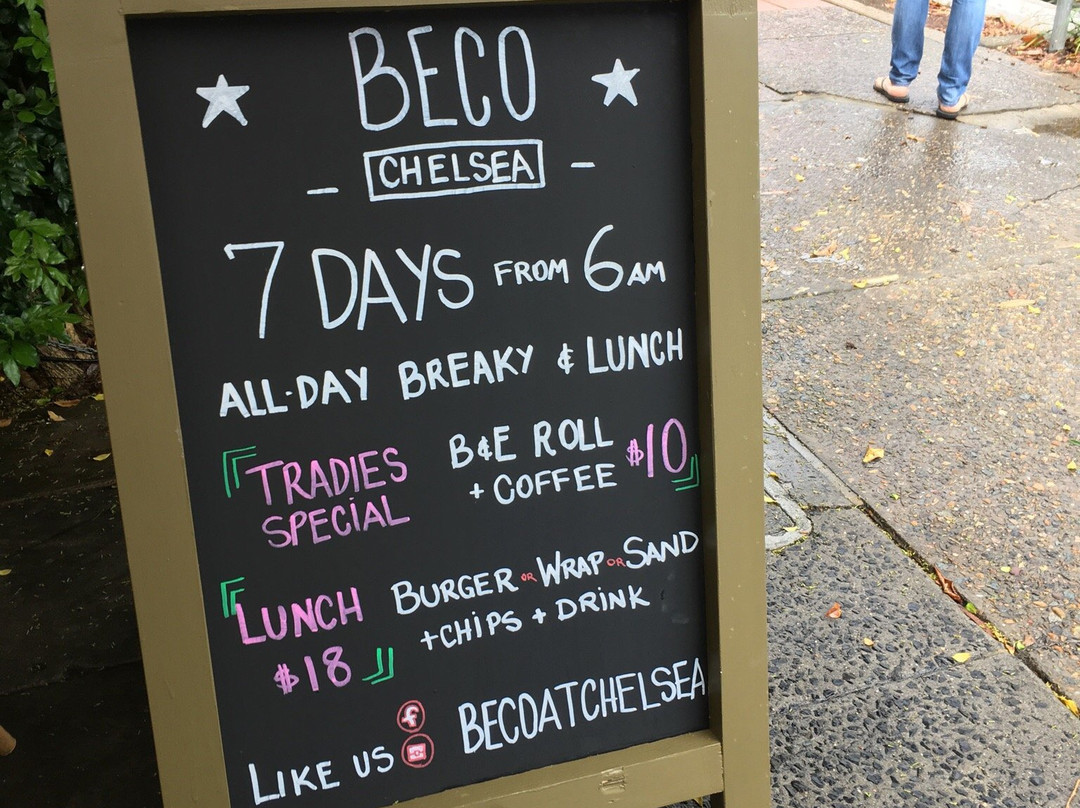 BECO
CHELSEA
7 DAYS FROM 6AM
ALL-DAY BREAKY & LUNCH
TRADIES SPECIAL
B&E ROLL + COFFEE $10
LUNCH $18
BURGER OR WRAP OR SAND
+CHIPS + DRINK
LIKE US f BECOATCHELSEA